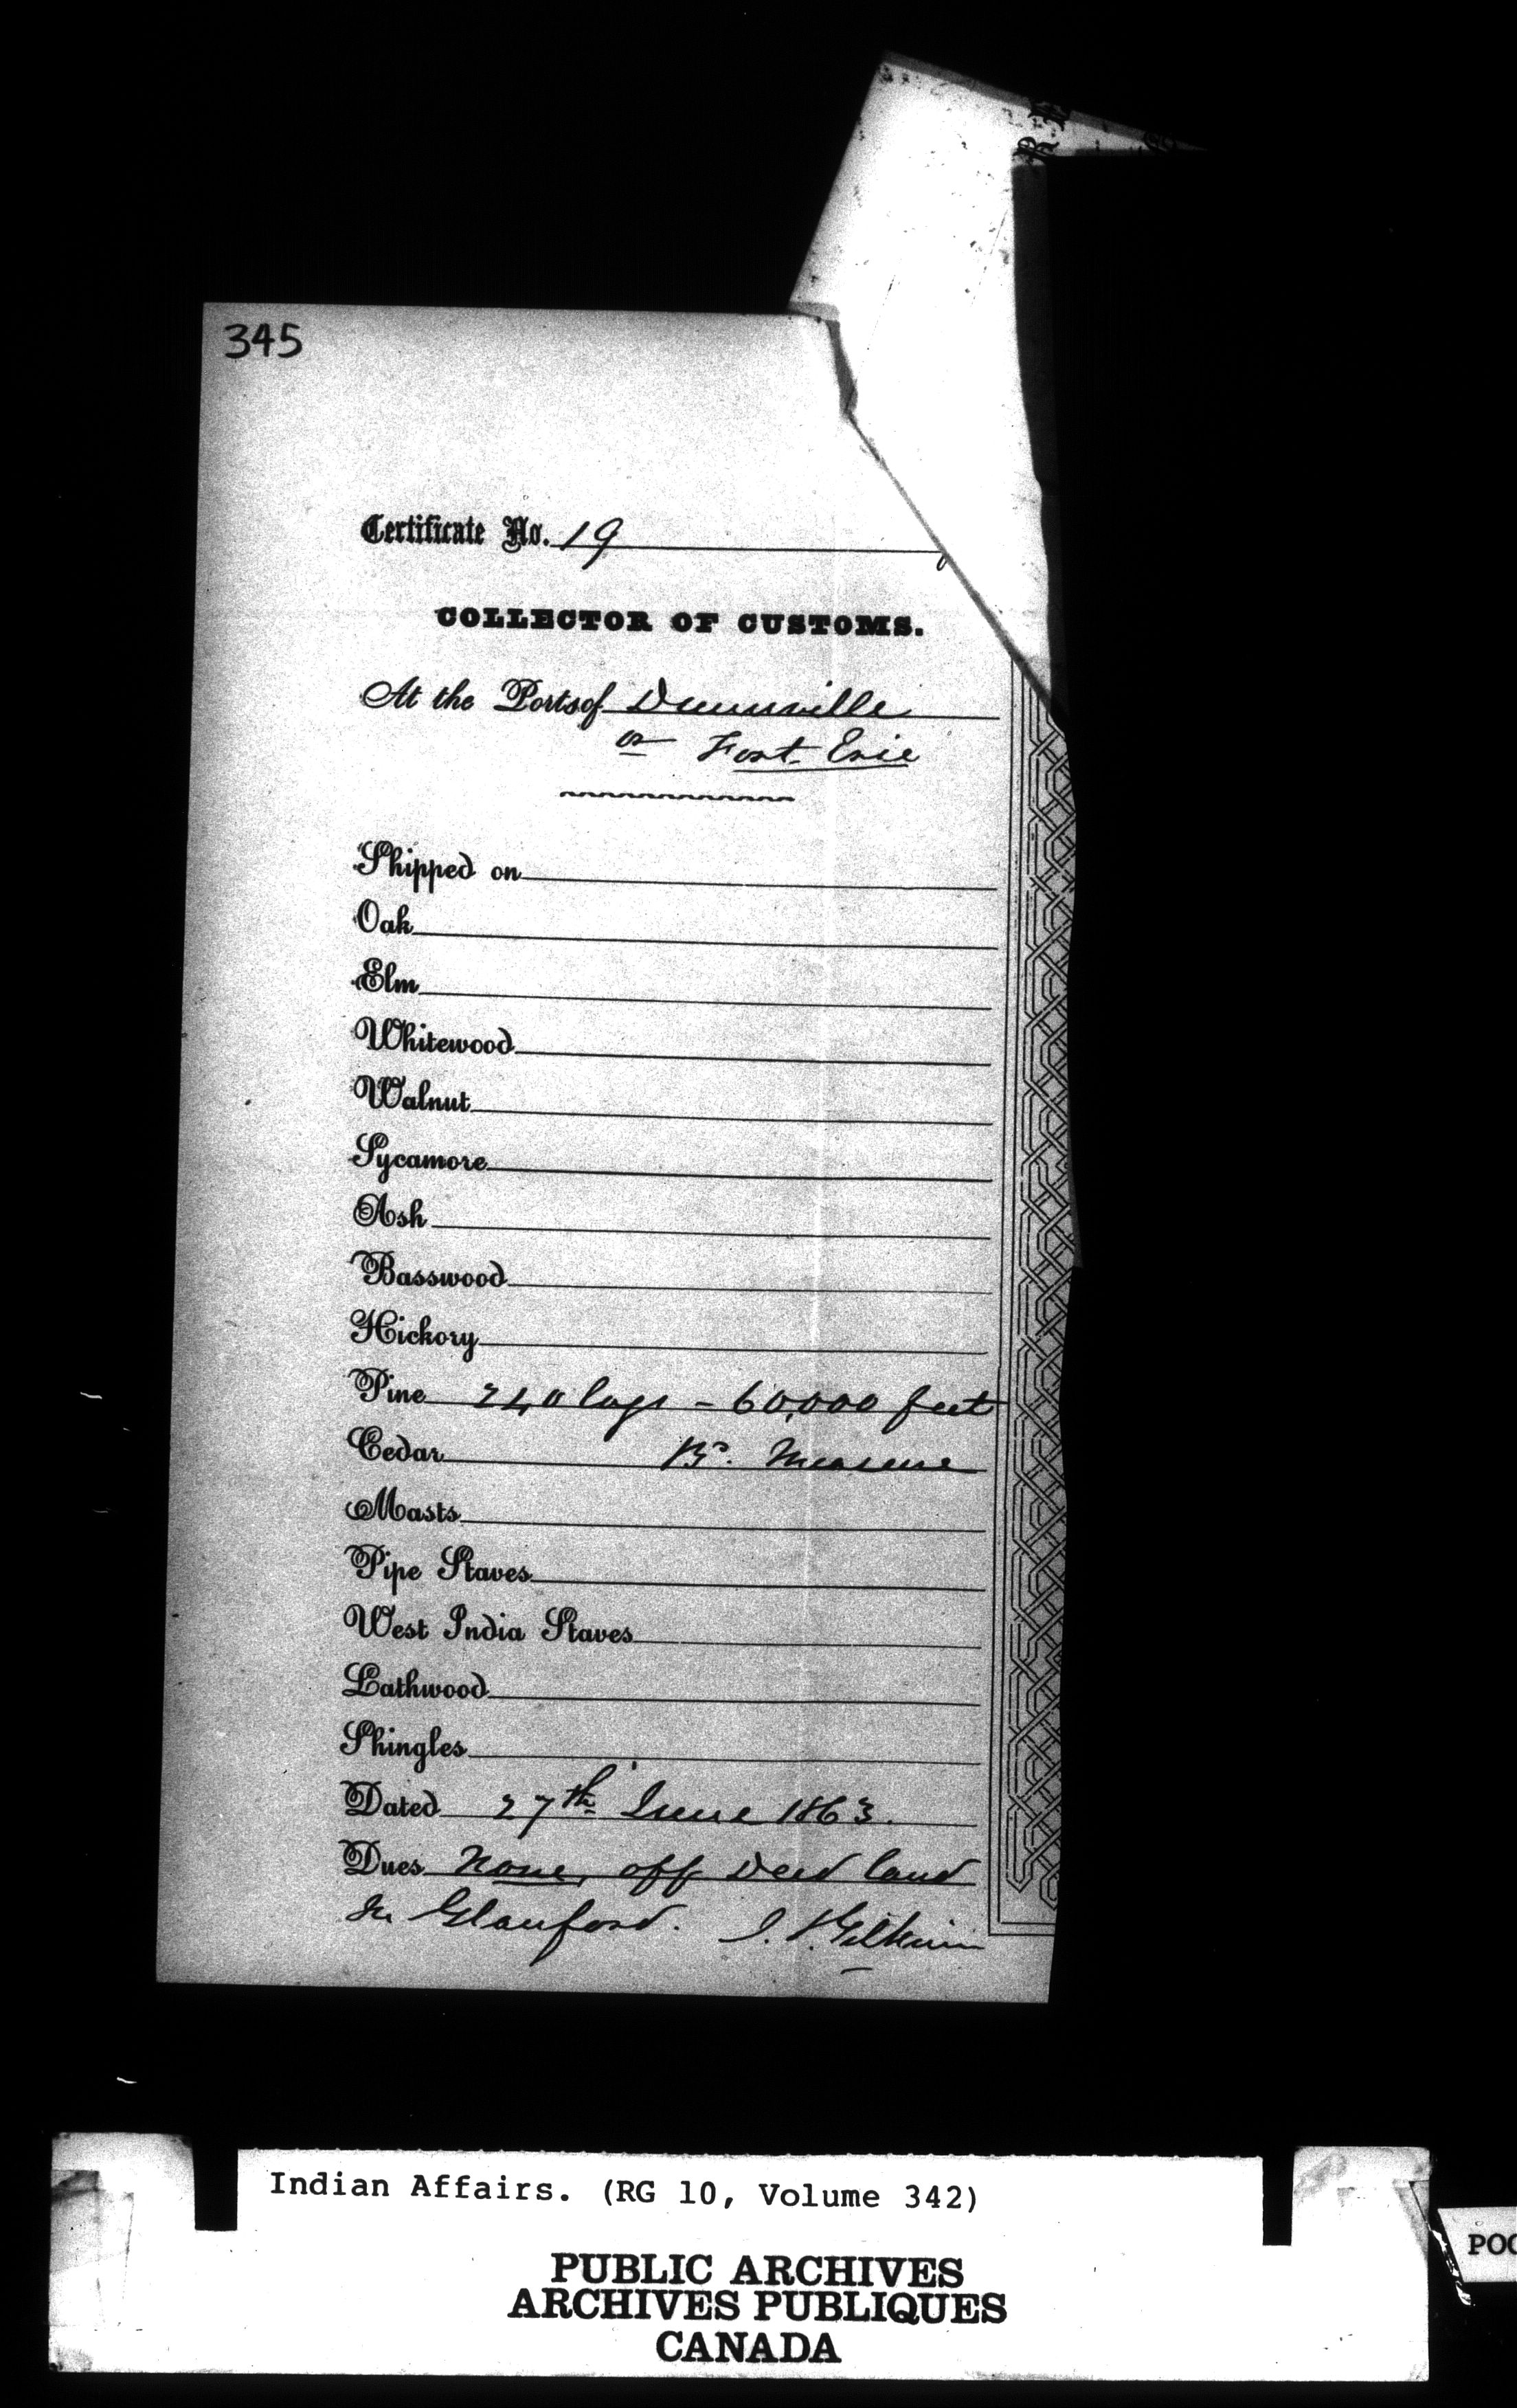 345
Certificate No. 19
COLLECTOR OF CUSTOMS.
At the Ports of Dunnville
or Fort Erie
Shipped on
Oak
Elm
Whitewood
Walnut
Sycamore
Ash
Basswood
Hickory
Pine 240 logs - 60,000 feet
Cedar Bd. Measure
Masts
Pipe Staves
West India Staves
Lathwood
Shingles
Dated 27th June 1863.
Dues None, off Deed land
In Glanford. J. T. Gilkison
Indian Affairs. (RG 10, Volume 342)
PUBLIC ARCHIVES
ARCHIVES PUBLIQUES
CANADA